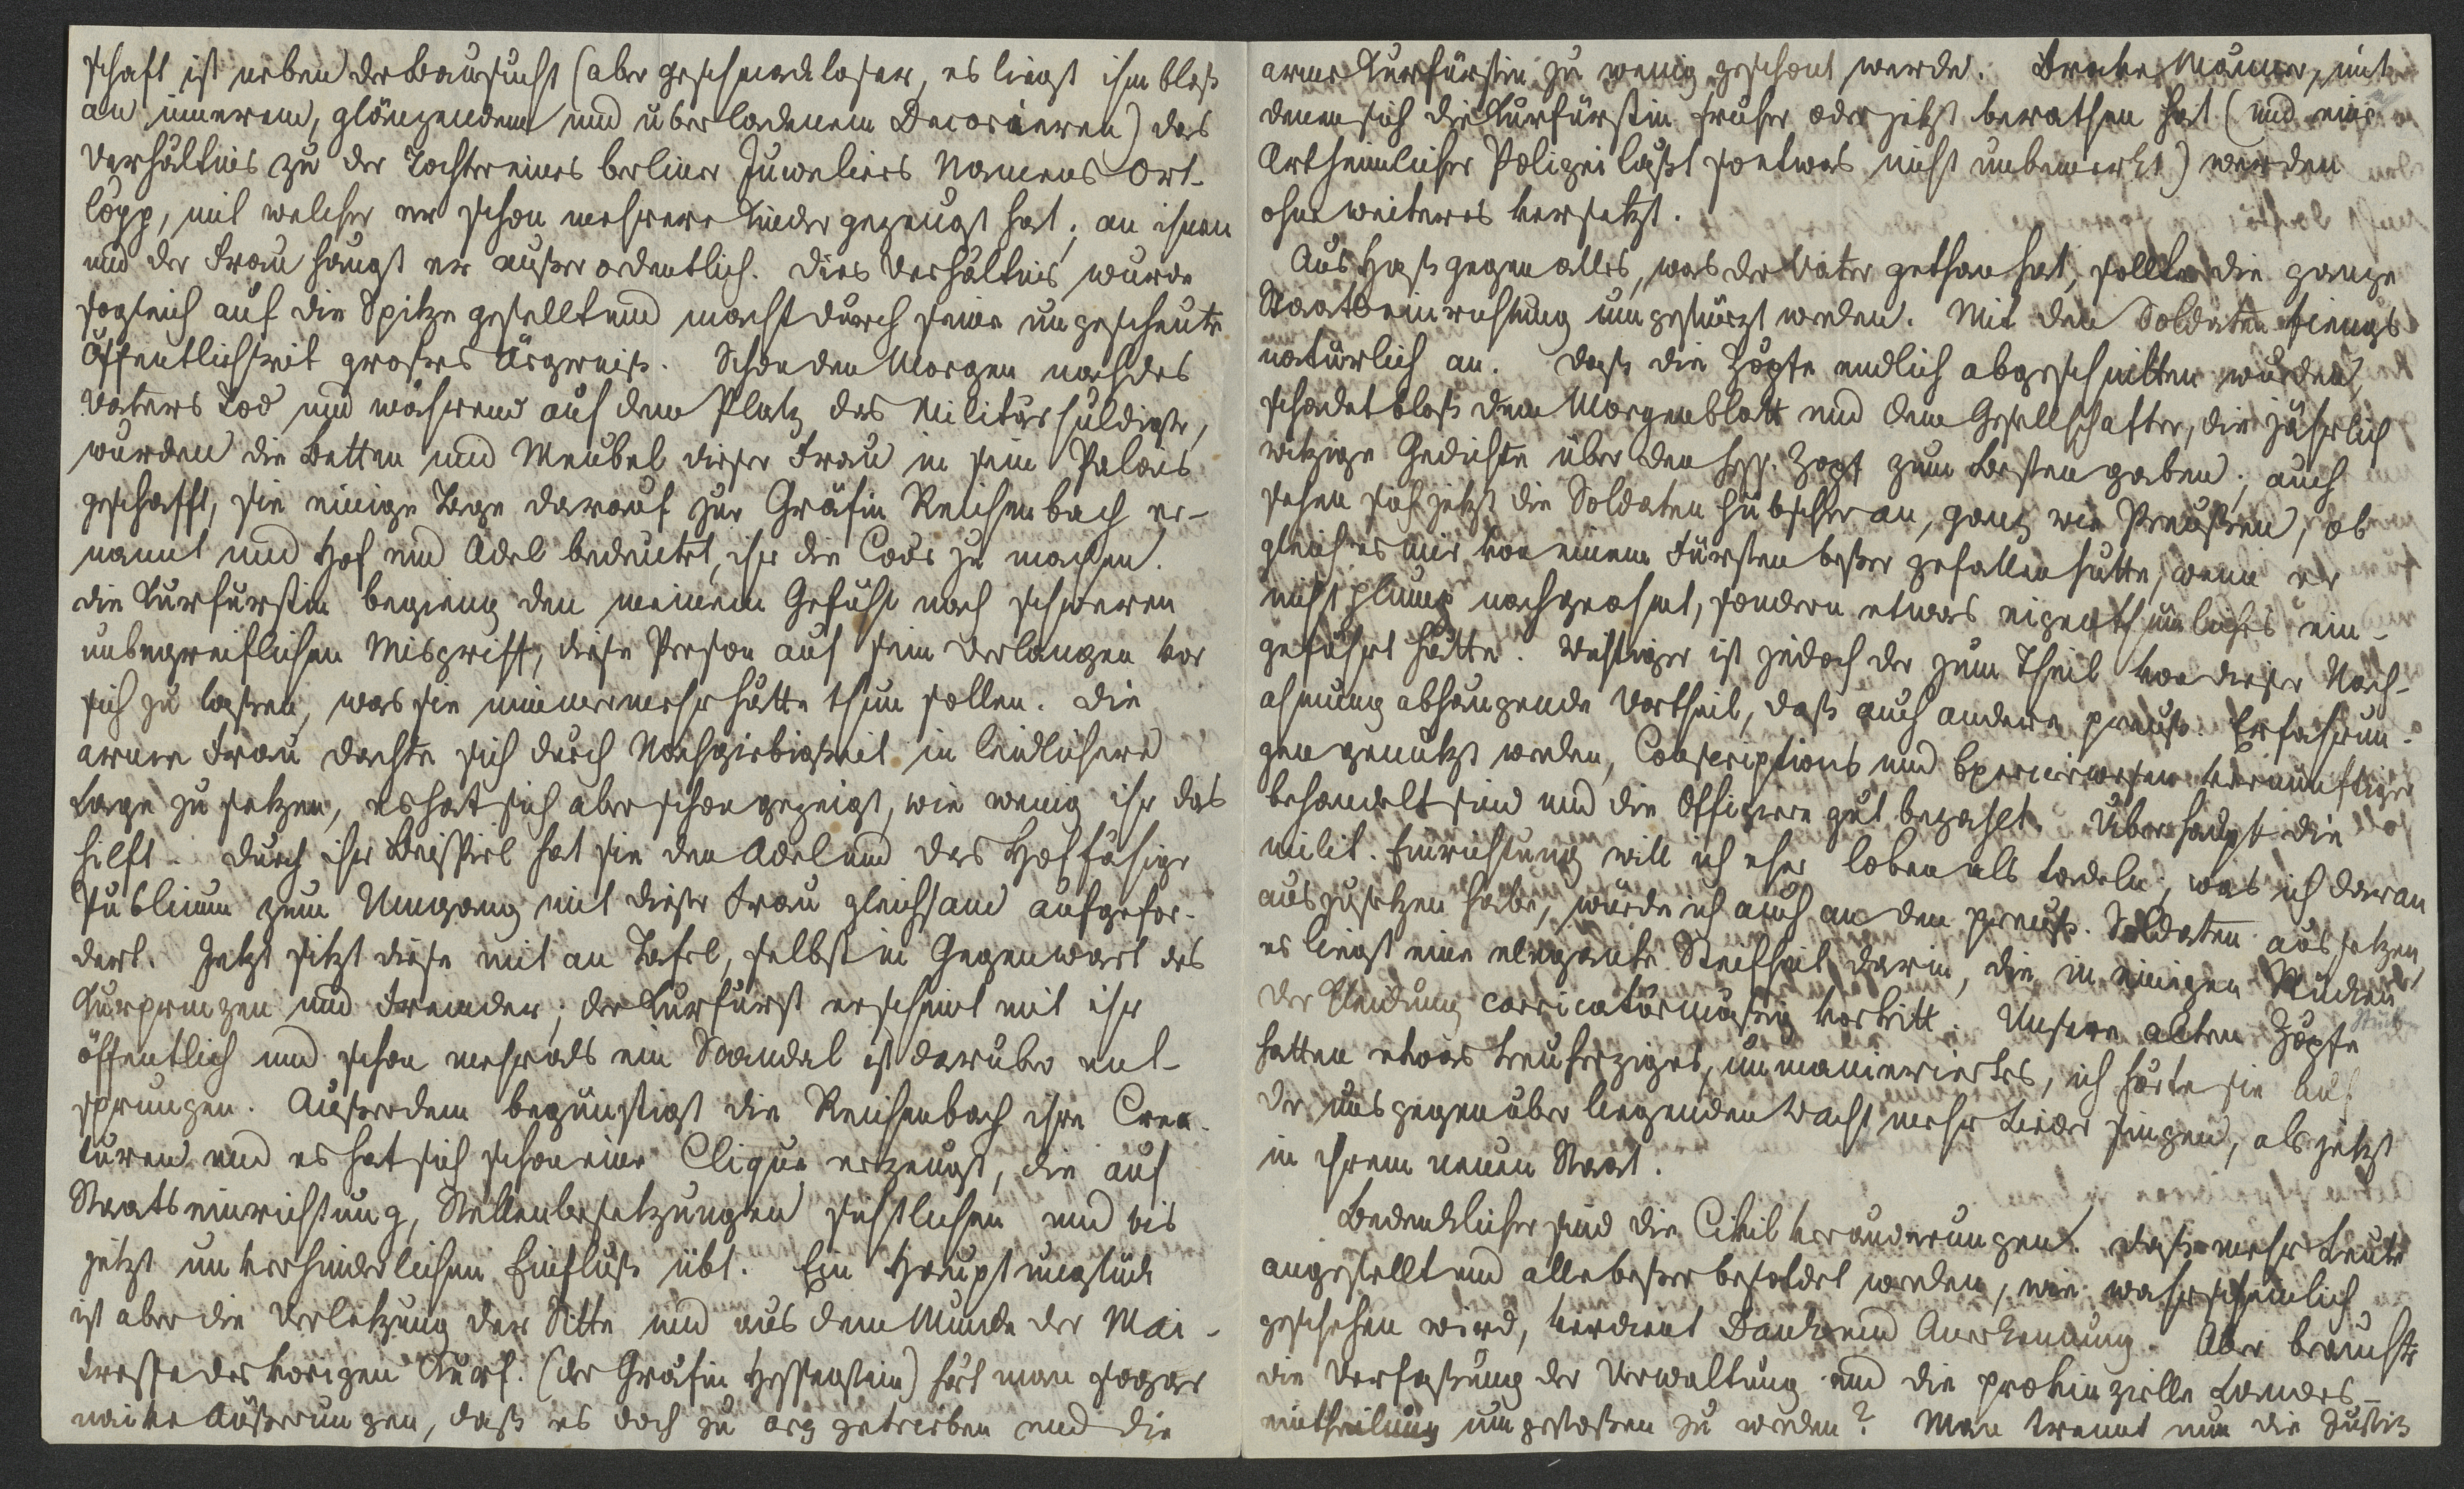 schaft ist neben der Bausucht (aber geschmackloser, es liegt ihm bloß
an innerem, glänzendem und überladenem Decorieren) das
Verhältnis zu der Tochter eines berliner Juweliers Namens Ort-
löpp, mit welcher er schon mehrere Kinder gezeugt hat; an ihnen
und der Frau hängt er außerordentlich. Dies Verhältnis wurde
sogleich auf die Spitze gestellt und macht durch seine ungescheute
Öffentlichkeit großes Ärgerniß. Schon den Morgen nach des
Vaters Tod und während auf dem Platz das Militär huldigte,
wurden die Betten und Meubel dieser Frau in sein Palais
geschafft, sie einige Tage darauf zur Gräfin Reichenbach er-
nannt und Hof und Adel bedeutet, ihr die Cour zu machen.
die Kurfürstin begieng den meinem Gefühl nach schweren
unbegreiflichen Misgriff, diese Person auf sein Verlangen vor
sich zu laßen, was sie nimmermehr hätte thun sollen. Die
arme Frau dachte sich durch Nachgiebigkeit in leidlichere
Lage zu setzen, es hat sich aber schon gezeigt, wie wenig ihr das
hilft. Durch ihr Beispiel hat sie den Adel und das Hoffähige
Publicum zum Umgang mit dieser Frau gleichsam aufgefor-
dert. Jetzt sitzt diese mit an Tafel, selbst in Gegenwart des
Kurprinzen und Fremder; der Kurfürst erscheint mit ihr
öffentlich und schon mehr als ein Scandal ist darüber ent-
sprungen. Außerdem begünstigt die Reichenbach ihre Crea-
turen und es hat sich schon eine Clique erzeugt, die auf
Staatseinrichtung, Stellenbesetzungen sichtlichen und bis
jetzt unverhinderlichen Einfluß übt. Ein Hauptunglück
ist aber die Verletzung der Sitte und aus dem Munde der Mai-
tresse des vorigen Kurf. (der Gräfin Hessenstein) hört man sogar
naive Äußerungen, daß es doch zu arg getrieben und die
arme Kurfürstin zu wenig geschont werde. Brave Männer, mit
denen sich die Kurfürstin früher oder jetzt berathen hat (und eine
Art heimlicher Polizei läßt so etwas nicht unbemerkt) werden
ohne weiteres versetzt.
Aus Haß gegen alles, was der Vater gethan hat, sollte die ganze
Staatseinrichtung umgestürzt werden. Mit den Soldaten fiengs
natürlich an. Daß die Zöpfe endlich abgeschnitten wurden,
schadet bloß dem Morgenblatt und dem Gesellschafter, die jährlich
witzige Gedichte über den hess. Zopf zum Besten gaben; auch
sehen sich jetzt die Soldaten hübscher an, ganz wie Preußen, ob
gleich es mir von einem Fürsten beßer gefallen hätte, wenn er
nicht plump nachgeahmt, sondern etwas eigenthümliches ein-
geführt hätte. Wichtiger ist jedoch der zum Theil von dieser Nach-
ahmung abhangende Vortheil, daß auch andere preuß. Erfahrun-
gen genutzt werden, Conscriptions und Exercierwesen vernünftiger
behandelt sind und die Offiziere gut bezahlt. Überhaupt die
milit. Einrichtung will ich eher loben als tadeln; was ich daran
auszusetzen habe, würde ich auch an den preuß. Soldaten aussetzen,
es liegt eine elegante Steifheit darin, die in einigen Stücken
Stück
der Kleidung carricaturmäßig vortritt. Unsere alten Zöpfe
hatten etwas treuherziges, unmanieriertes, ich hörte sie auf
der uns gegenüber liegenden Wacht mehr Lieder singen, als jetzt
in ihrem neuen Staat.
Bedenklicher sind die Civilveränderungen. Daß mehr Leute
angestellt und alle beßer besoldet werden, wie wahrscheinlich
geschehen wird, verdient Dank und Anerkennung. Aber brauchte
die Verfaßung der Verwaltung und die provinzielle Landes-
eintheilung umgestoßen zu werden? Man trennt nun die Justiz